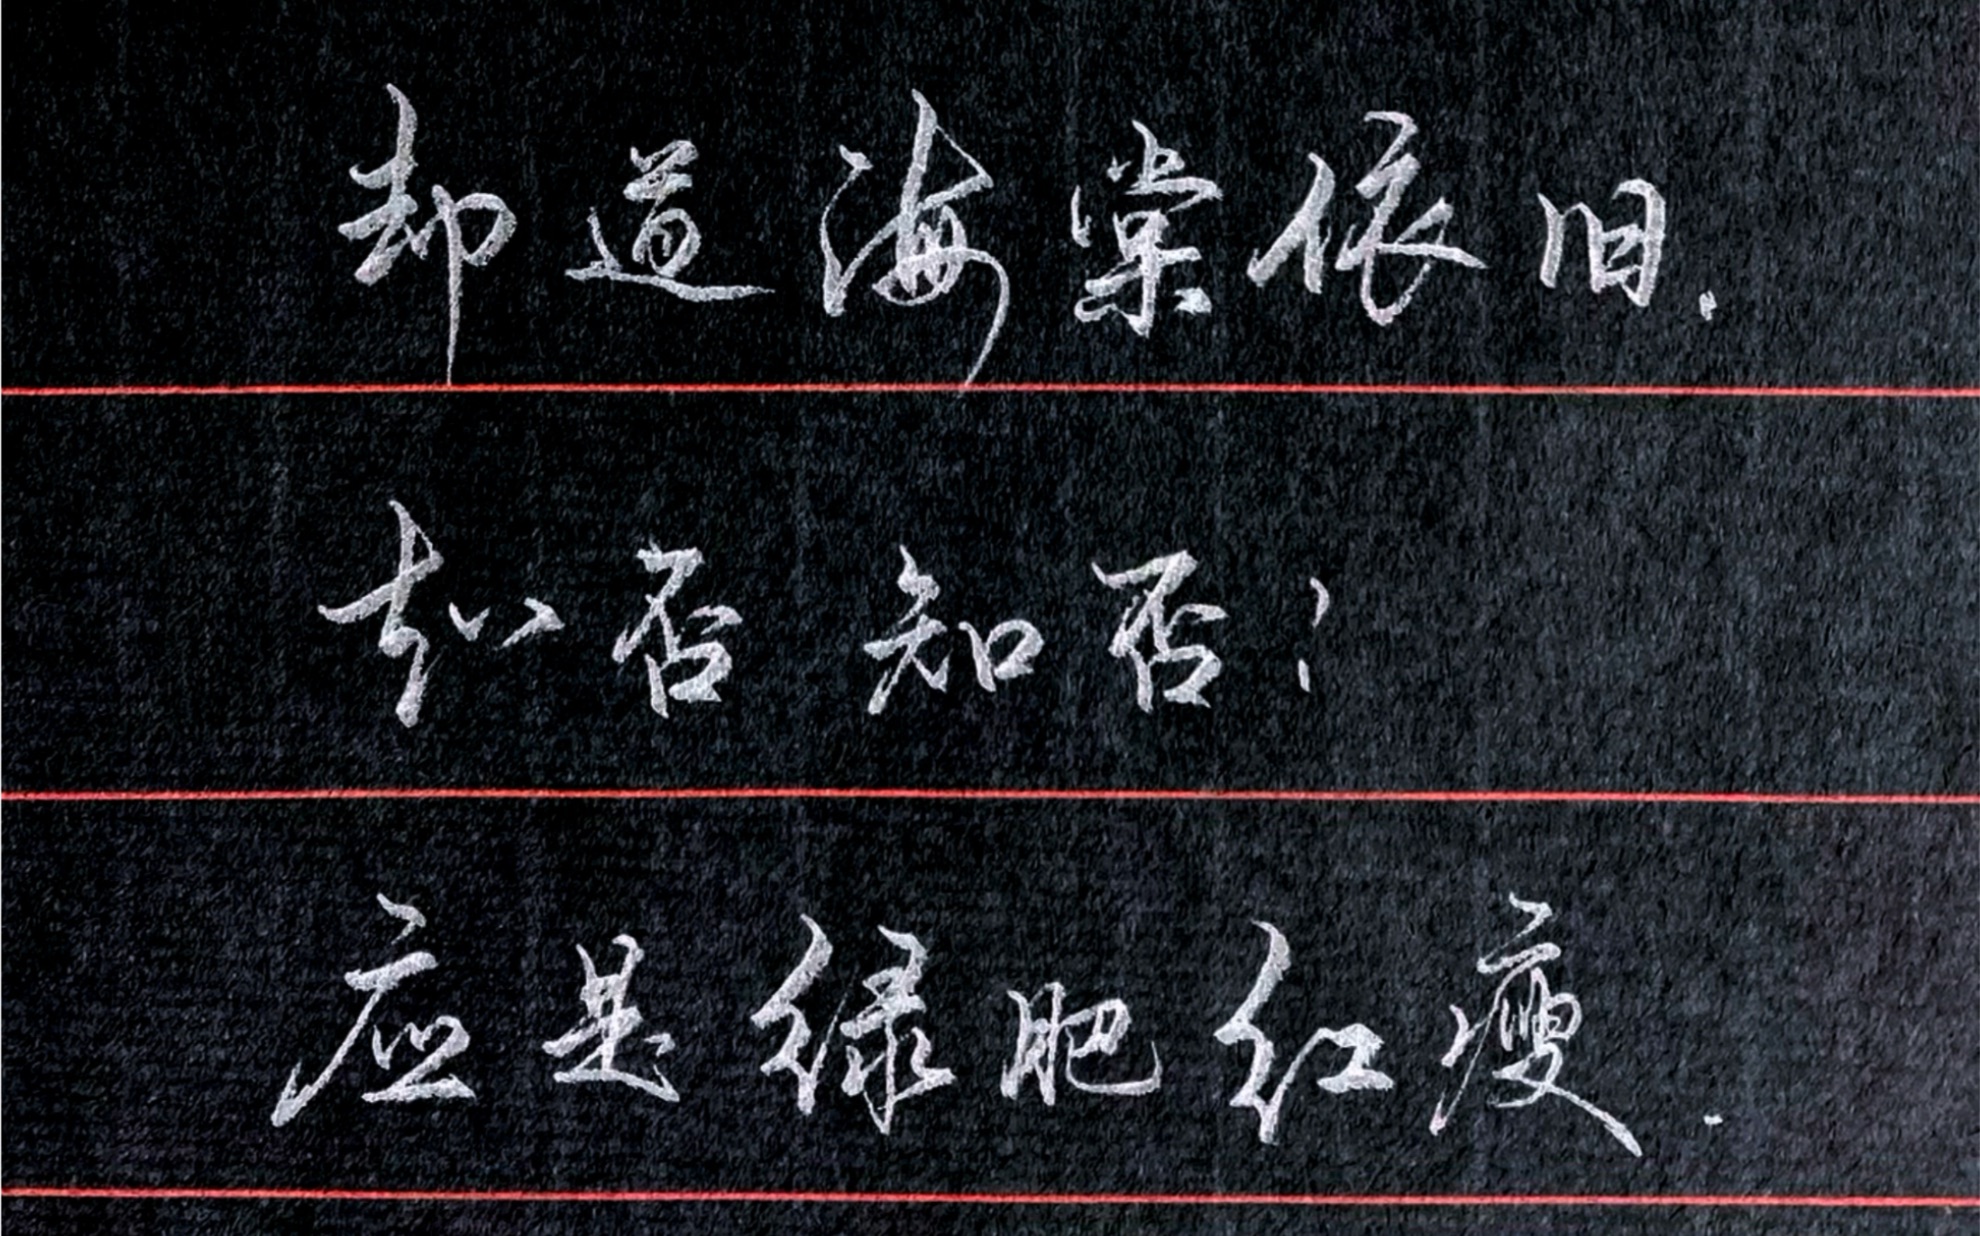 却道海棠依旧.
知否知否!
应是绿肥红瘦.